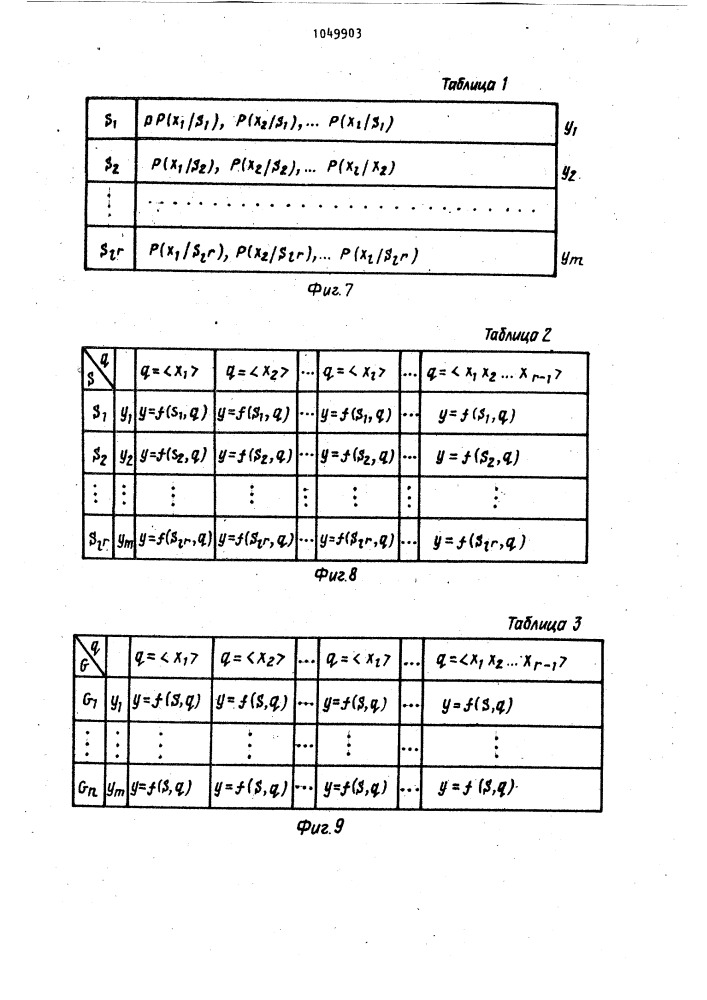 1049903
Таблица 1
S₁ p P(x₁/S₁), P(x₂/S₁),... P(xₗ/S₁) y₁
S₂ P(x₁/S₂), P(x₂/S₂),... P(xₗ/x₂) y₂
⋮ . . . . . . . . . . . . . . . . . . . . . . . .
Sₗr P(x₁/Sₗr), P(x₂/Sₗr),... P(xₗ/Sₗr) ym
Фиг.7
Таблица 2
q S q=<x₁> q=<x₂> ... q=<xₗ> ... q=<x₁ x₂ ... x r-1>
S₁ y₁ y=f(S₁,q) y=f(S₁,q) ... y=f(S₁,q) ... y=f(S₁,q)
S₂ y₂ y=f(S₂,q) y=f(S₂,q) ... y=f(S₂,q) ... y=f(S₂,q)
⋮ ⋮ ⋮ ⋮ ⋮ ⋮ ⋮ ⋮
Sₗr ym y=f(Sₗr,q) y=f(Sₗr,q) ... y=f(Sₗr,q) ... y=f(Sₗr,q)
Фиг.8
Таблица 3
q G q=<x₁> q=<x₂> ... q=<xₗ> ... q=<x₁ x₂ ... x r-1>
G₁ y₁ y=f(S,q) y=f(S,q) ... y=f(S,q) ... y=f(S,q)
⋮ ⋮ ⋮ ⋮ ... ⋮ ... ⋮
Gn ym y=f(S,q) y=f(S,q) ... y=f(S,q) ... y=f(S,q)
Фиг.9